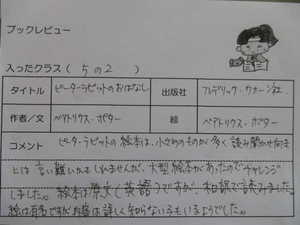 ブックレビュー
入ったクラス（ 5の2 ）
タイトル ピーターラビットのおはなし 出版社 フレデリック・ウォーン社
作者／文 ベアトリクス・ポター 絵 ベアトリクス・ポター
コメント ピーターラビットの絵本は、小さめのものが多く読み聞かせ向き
とは言い難いかもしれませんが、大型絵本があったのでチャレンジ
しました。絵本は原文(英語)ですが、和訳で読みました。
絵は有名ですがお話は詳しく知らない子もいるようでした。